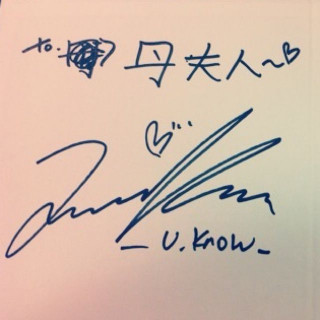 to. 母夫人~♡
- U.Know -